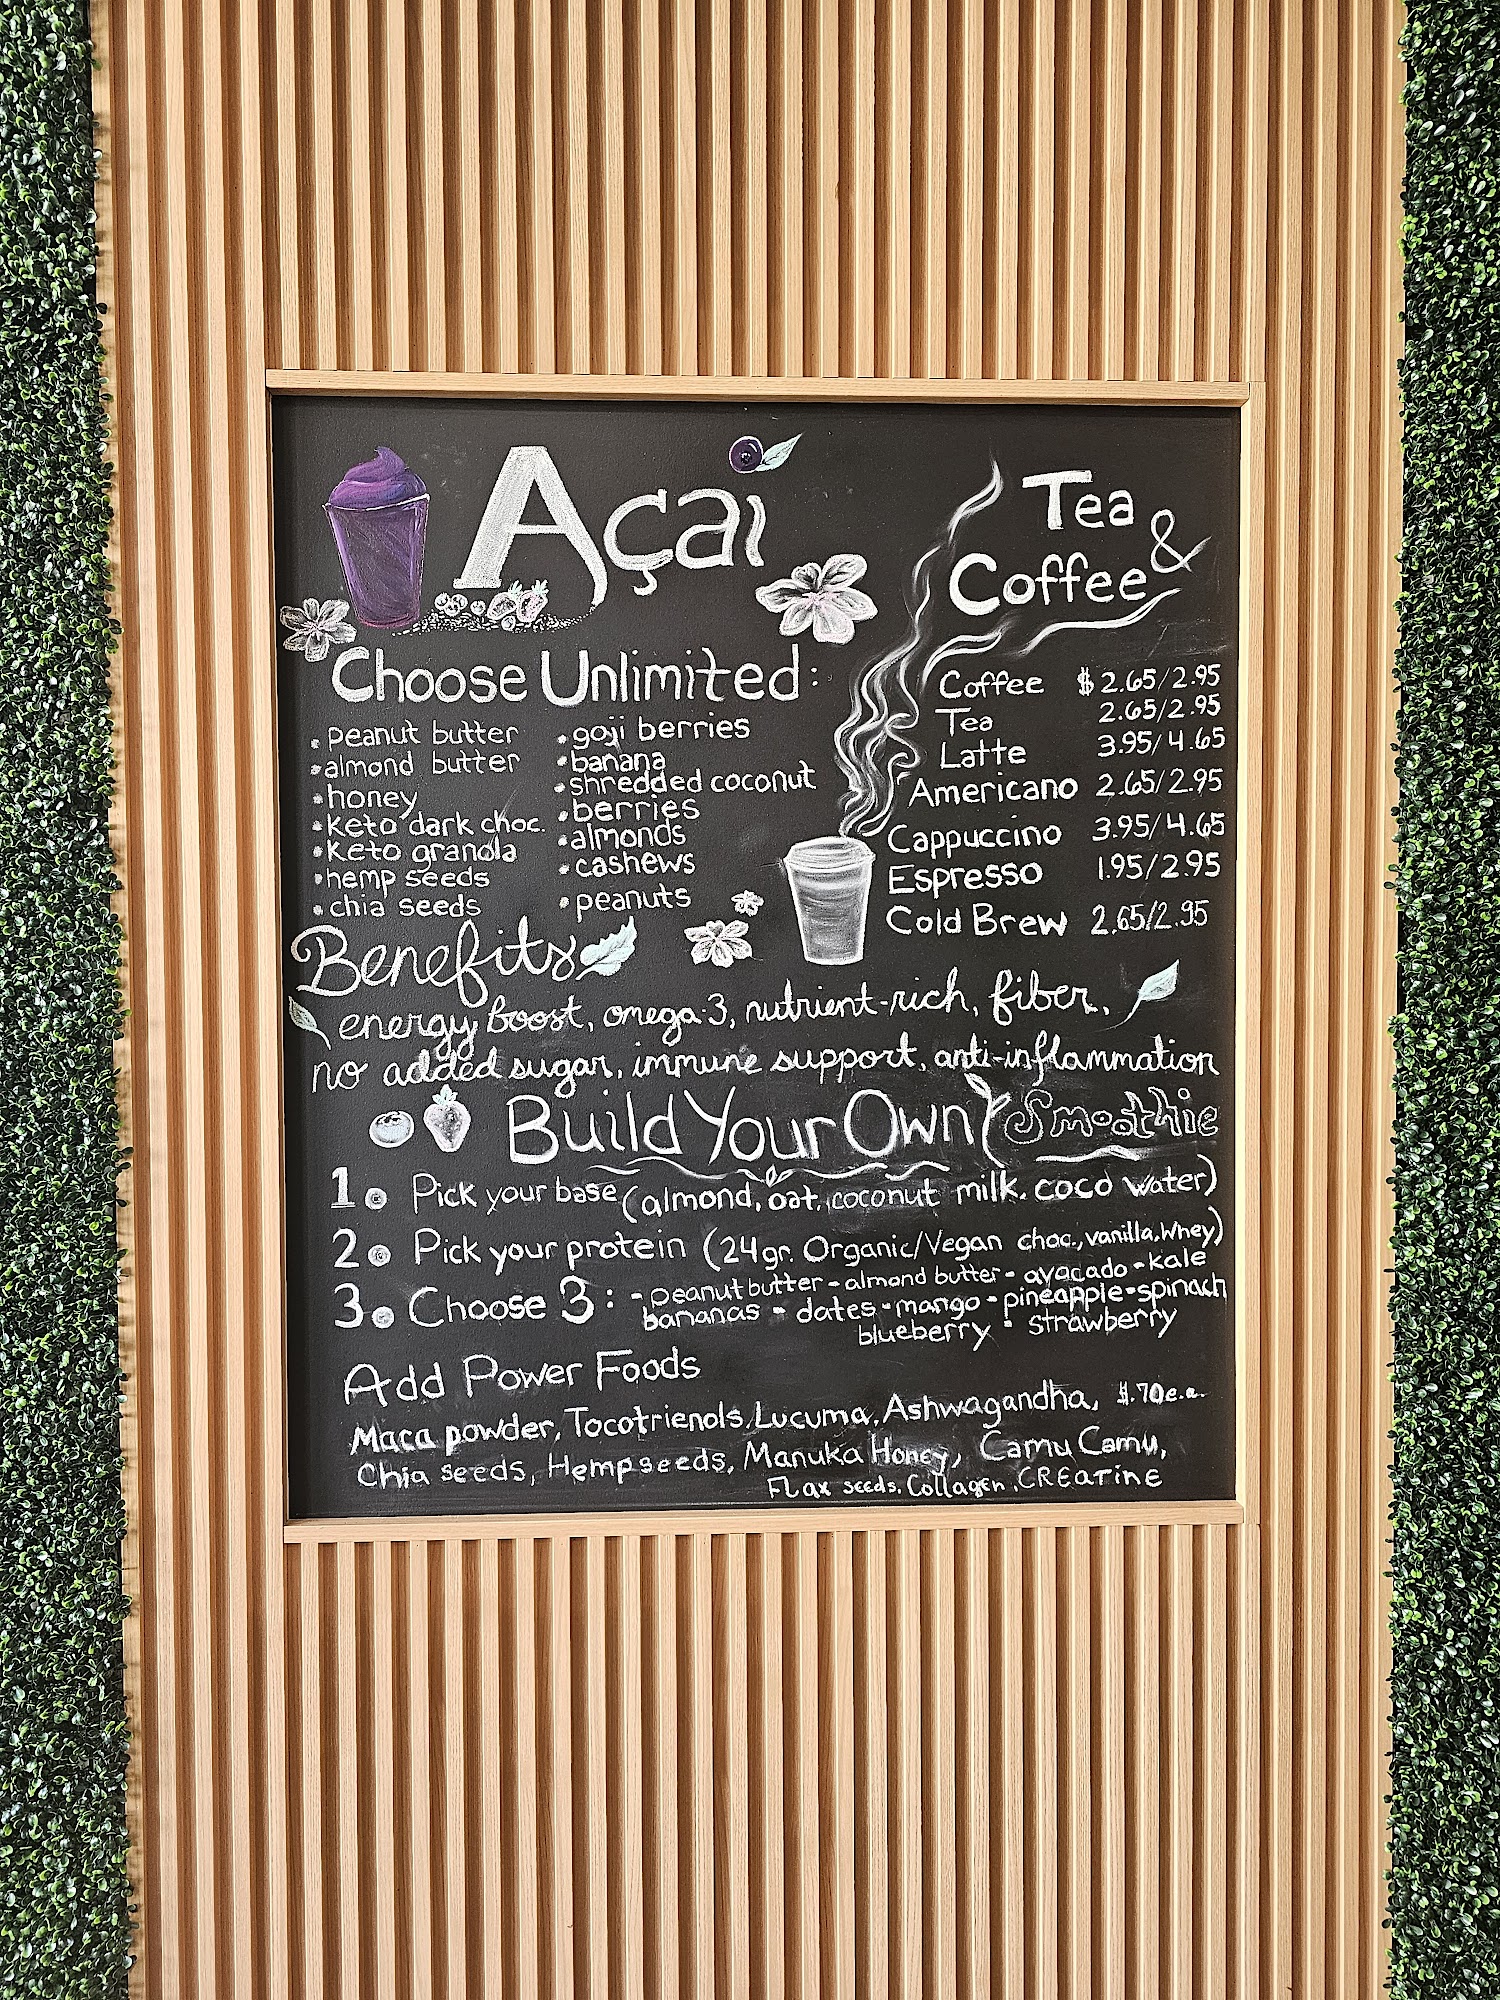 Açai
Choose Unlimited:
• peanut butter
• almond butter
• honey
• Keto dark choc.
• Keto granola
• hemp seeds
• chia seeds
• goji berries
• banana
• shredded coconut
• berries
• almonds
• cashews
• peanuts
Tea &
Coffee
Coffee $ 2.65/2.95
Tea 2.65/2.95
Latte 3.95/4.65
Americano 2.65/2.95
Cappuccino 3.95/4.65
Espresso 1.95/2.95
Cold Brew 2.65/2.95
Benefits
energy boost, omega-3, nutrient-rich, fiber,
no added sugar, immune support, anti-inflammation
Build Your Own Smoothie
1. Pick your base (almond, oat, coconut milk, coco water)
2. Pick your protein (24gr. Organic/Vegan choc., vanilla, Whey)
3. Choose 3: - peanut butter - almond butter - avocado - kale
bananas - dates - mango - pineapple - spinach
blueberry - strawberry
Add Power Foods
Maca powder, Tocotrienols, Lucuma, Ashwagandha, $.70 e.a.
Chia seeds, Hemp seeds, Manuka Honey, Camu Camu,
Flax seeds, Collagen, CREATINE